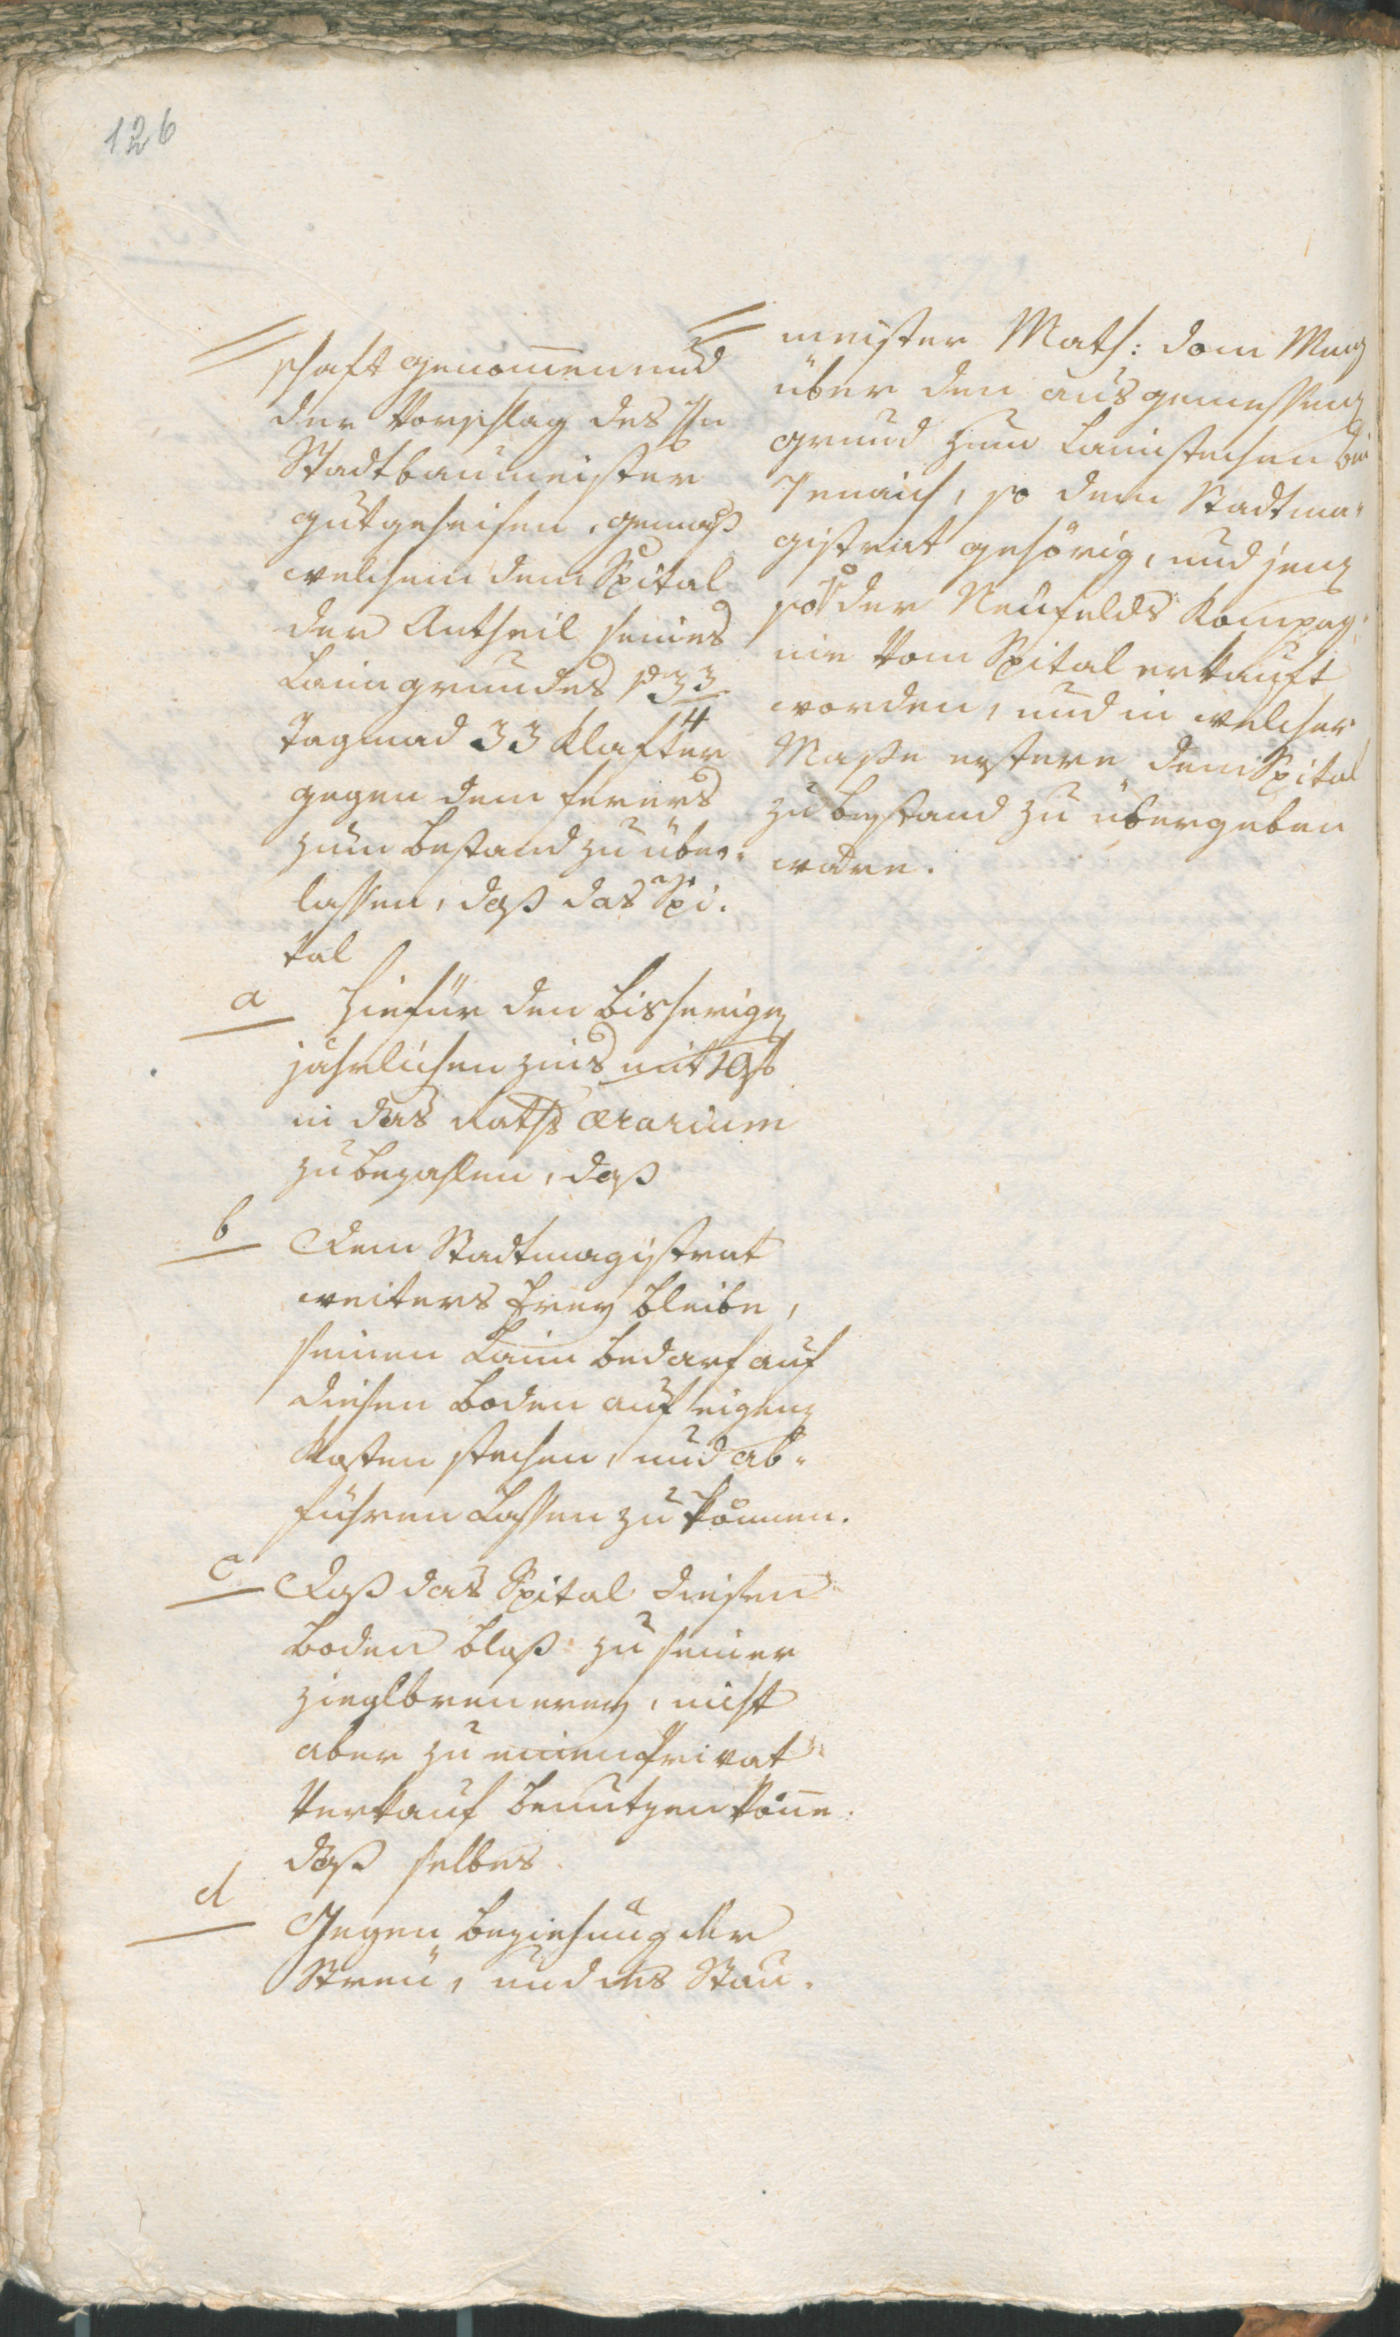 126
schaft genom̅en und
der Vorschlag des Hn
Stadtbaumeister
gutgeheisen, gemäß
welchem dem Spital
der Antheil seines
Laimgrundes p 3 3/4
Tagmad 33 Klafter
gegen dem ferers
zum Bestand zu über-
lassen, daß das Spi-
tal
a hiefür den bisherigen
jährlichen Zins mit 19 f
in das Raths ærarium
zu bezahlen, daß
b Dem Stadtmagistrat
weiters frey bleibe,
seinen Laim bedarf auf
diesen Boden auf eigene
Kosten stechen, und ab-
führen lassen zu können.
c Daß das Spital diesen
Boden bloß zu seiner
Zieglbrenerey, nicht
aber zu einen Privat
Verkauf benutzen kön̅e.
daß selbes
d Gegen Beziehung der
Streu, und des Stau-
meister Math: dom
über den ausgemessenen
grund zum Laimstechen bei
so dem Stadtma-
gistrat gehörig, und jenen
so der Neufelds Kompag-
nie vom Spital erkauft
worden, und in welcher
Maße erstere dem Spital
zu bestand zu übergeben
wäre.